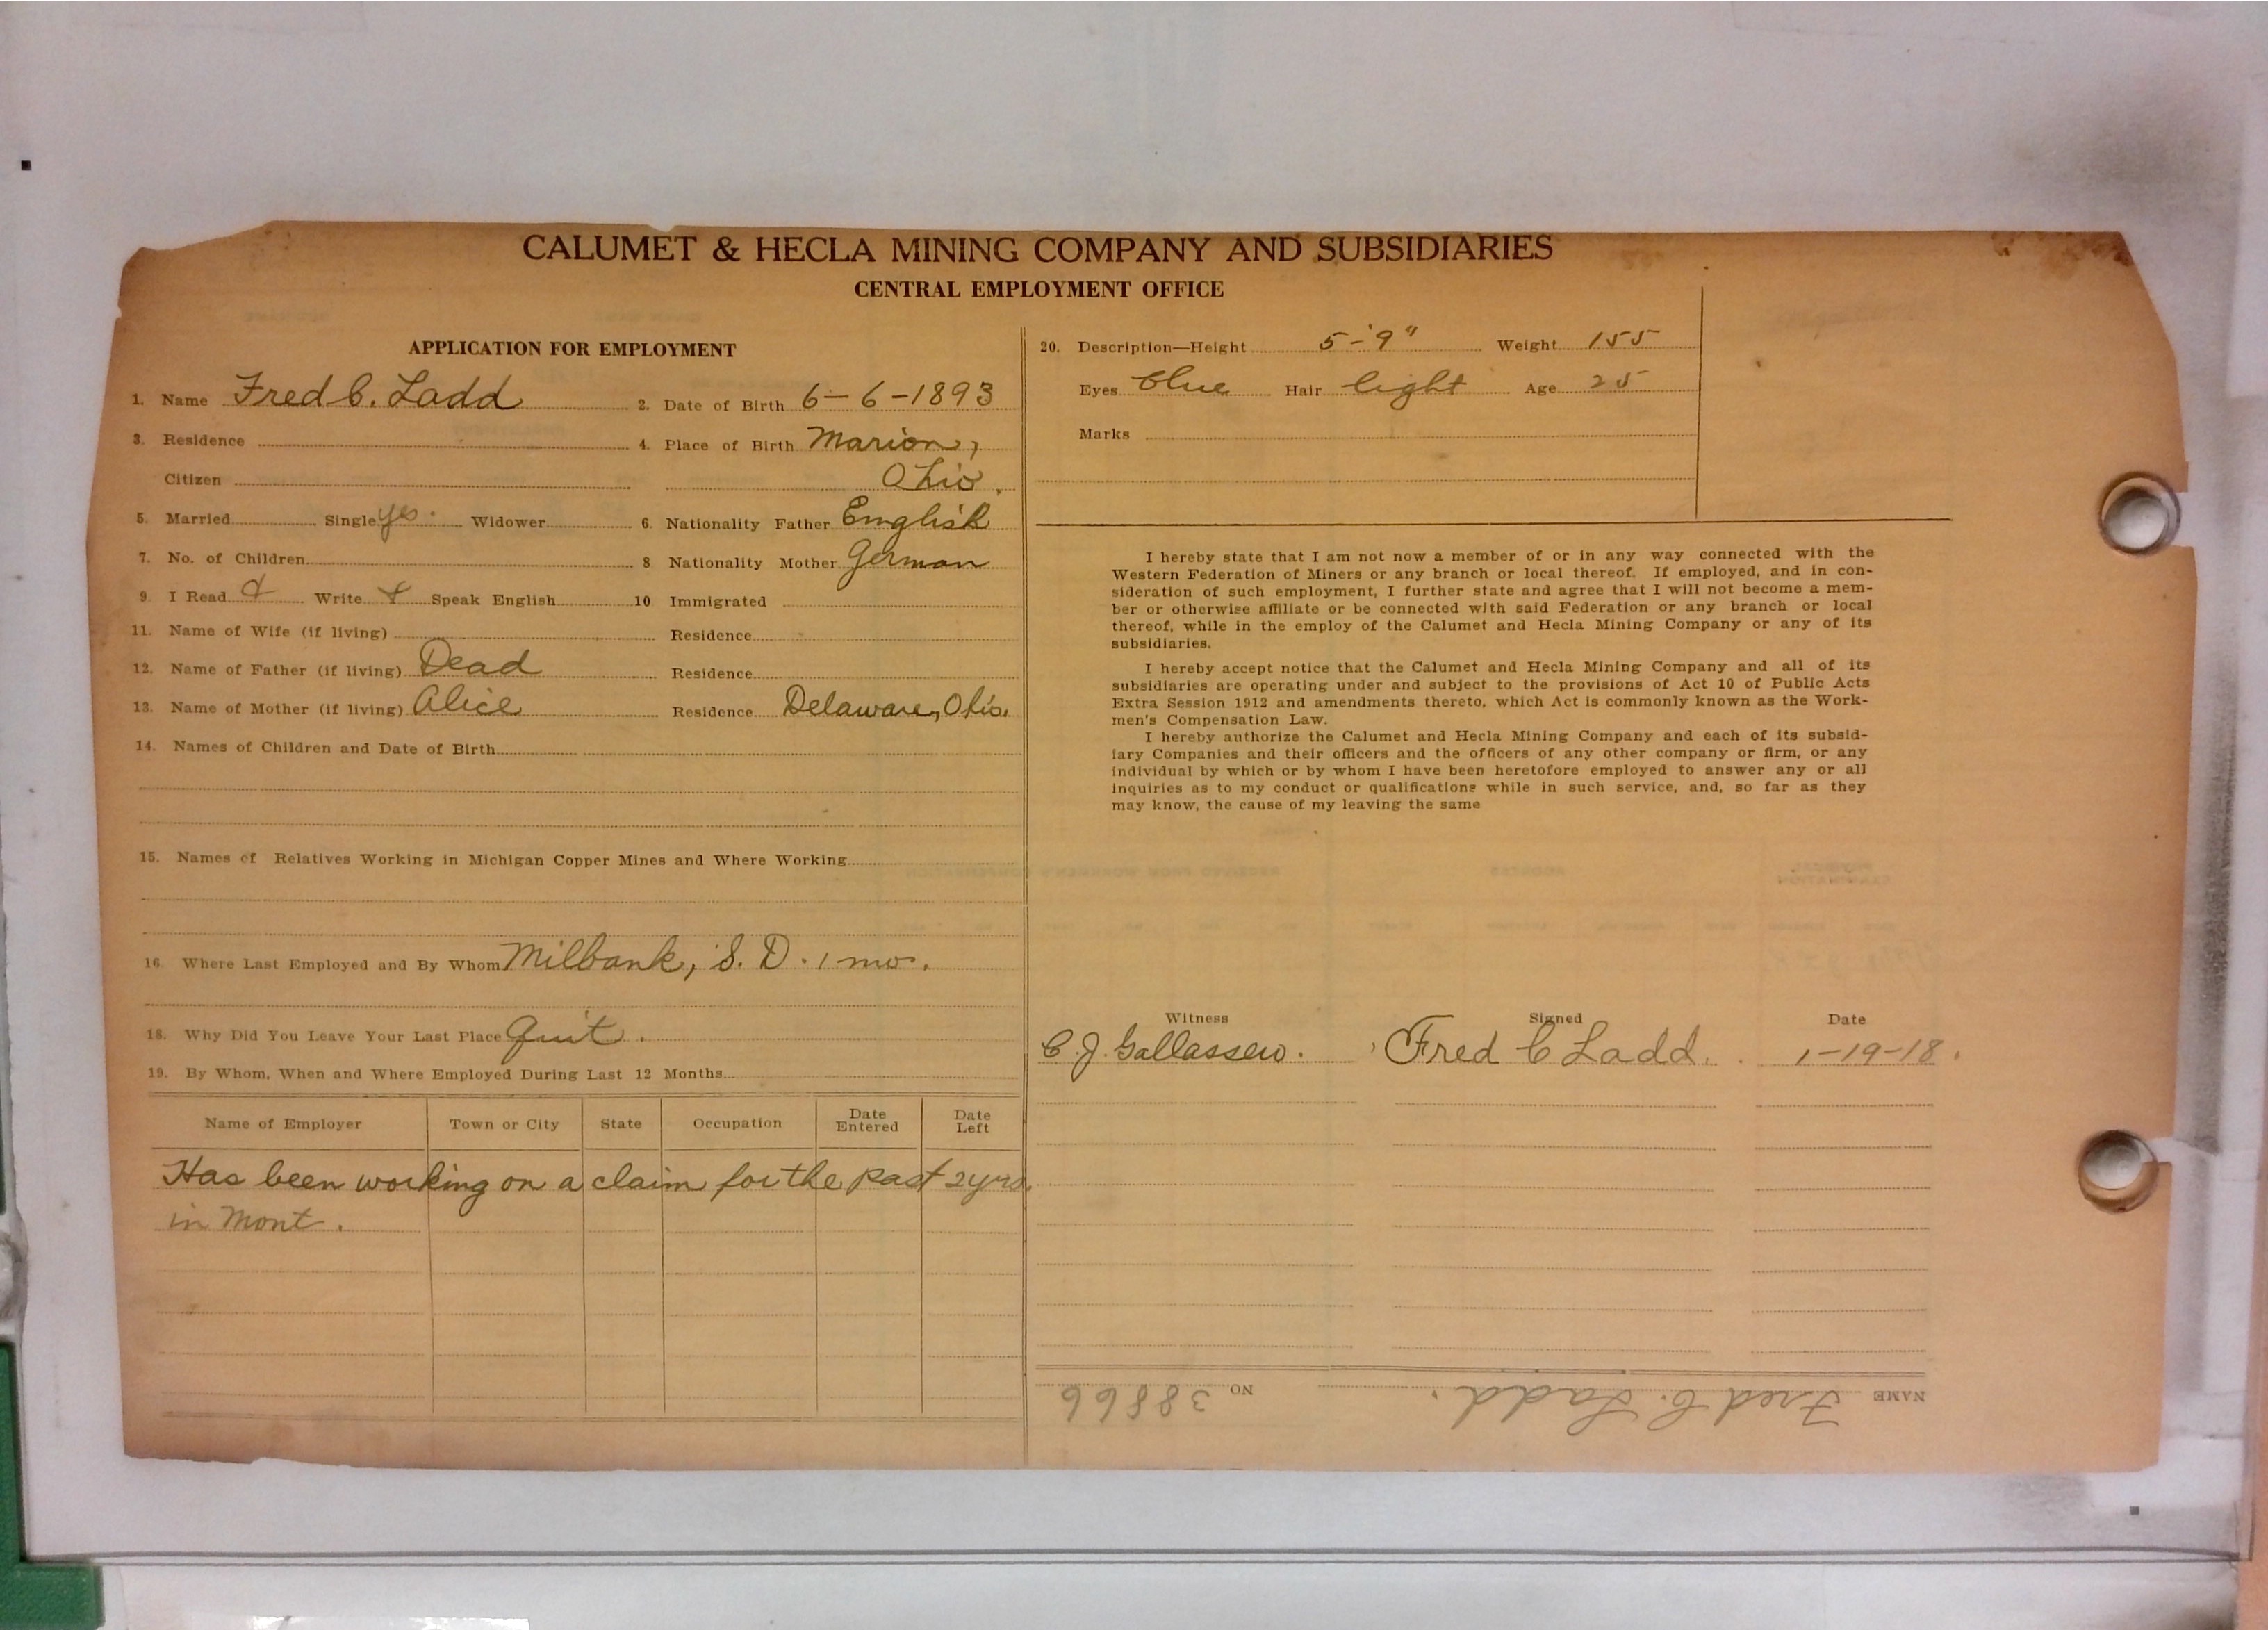 CALUMET & HECLA MINING COMPANY AND SUBSIDIARIES
CENTRAL EMPLOYMENT OFFICE
APPLICATION FOR EMPLOYMENT
1. Name Fred C. Ladd 2. Date of Birth 6-6-1893
3. Residence 4. Place of Birth Marion,
Citizen Ohio.
5. Married Single yes. Widower 6. Nationality Father English
7. No. of Children 8 Nationality Mother German
9. I Read & Write & Speak English 10 Immigrated
11. Name of Wife (if living) Residence
12. Name of Father (if living) Dead Residence
13. Name of Mother (if living) Alice Residence Delaware, Ohio.
14. Names of Children and Date of Birth
15. Names of Relatives Working in Michigan Copper Mines and Where Working
16. Where Last Employed and By Whom Milbank, S. D. 1 mo.
18. Why Did You Leave Your Last Place Quit.
19. By Whom, When and Where Employed During Last 12 Months
Name of Employer Town or City State Occupation Date Entered Date Left
Has been working on a claim for the past 2 yrs.
in Mont.
20. Description—Height 5-'9" Weight 155
Eyes blue Hair light Age 25
Marks
I hereby state that I am not now a member of or in any way connected with the
Western Federation of Miners or any branch or local thereof. If employed, and in con-
sideration of such employment, I further state and agree that I will not become a mem-
ber or otherwise affiliate or be connected with said Federation or any branch or local
thereof, while in the employ of the Calumet and Hecla Mining Company or any of its
subsidiaries.
I hereby accept notice that the Calumet and Hecla Mining Company and all of its
subsidiaries are operating under and subject to the provisions of Act 10 of Public Acts
Extra Session 1912 and amendments thereto, which Act is commonly known as the Work-
men's Compensation Law.
I hereby authorize the Calumet and Hecla Mining Company and each of its subsid-
iary Companies and their officers and the officers of any other company or firm, or any
individual by which or by whom I have been heretofore employed to answer any or all
inquiries as to my conduct or qualifications while in such service, and, so far as they
may know, the cause of my leaving the same
Witness Signed Date
C. J. Fred C Ladd. 1-19-18.
NAME Fred C. Ladd. NO 38866